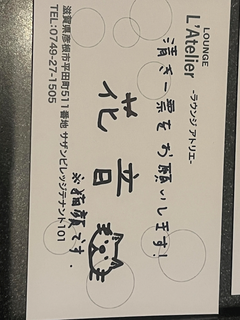 LOUNGE
L'Atelier
-ラウンジ アトリエ-
清き一票をお願いします!
花音
※猫顔です。
滋賀県彦根市平田町511番地 サザンビレッジテナント101
TEL:0749-27-1505